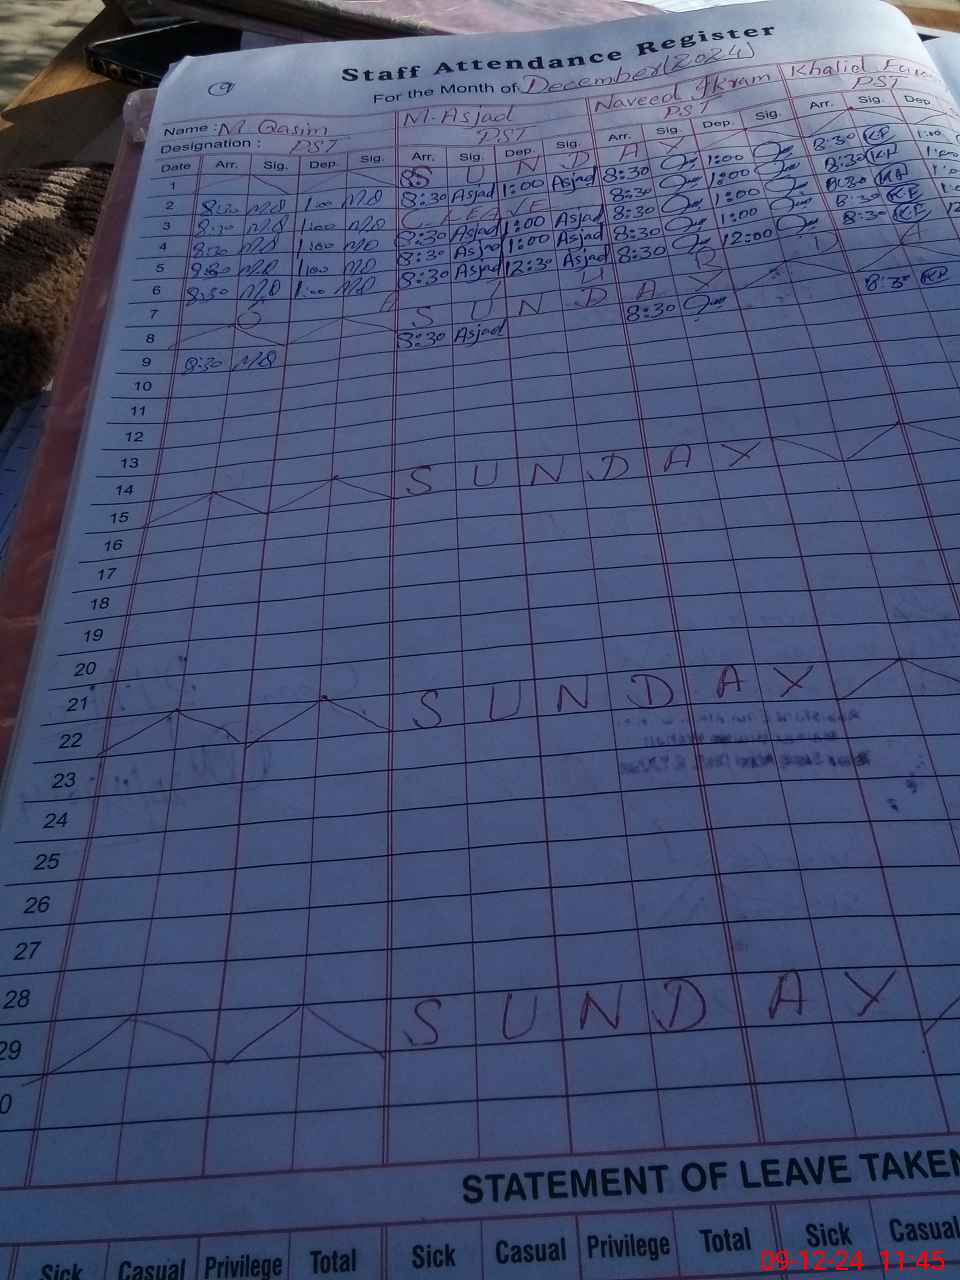 9
Staff Attendance Register
For the Month of December (2024)
Name : M Qasim M. Asjad Naveed Ikram Khalid
Designation : PST PST PST PST
Date Arr. Sig. Dep. Sig. Arr. Sig. Dep. Sig. Arr. Sig. Dep. Sig. Arr. Sig. Dep
1 S U N D A Y
2 8:30 MQ 1:00 MQ 8:30 Asjad 1:00 Asjad 8:30 1:00 8:30 KF 1:00
3 8:30 MQ 1:00 MQ C-LEAVE 8:30 1:00 8:30 KF 1:00
4 8:30 MQ 1:00 MQ 8:30 Asjad 1:00 Asjad 8:30 1:00 8:30 KF
5 8:30 MQ 1:00 MQ 8:30 Asjad 1:00 Asjad 8:30 1:00 8:30 KF
6 8:30 MQ 1:00 MQ 8:30 Asjad 12:30 Asjad 8:30 12:00 8:30 KF 12
7
8 S U N D A Y
9 8:30 MQ 8:30 Asjad 8:30 8:30 KF
10
11
12
13
14
15 S U N D A Y
16
17
18
19
20
21
22 S U N D A Y
23
24
25
26
27
28
29 S U N D A Y
0
STATEMENT OF LEAVE TAKEN
Sick Casual Privilege Total Sick Casual Privilege Total Sick Casual
09-12-24 11:45